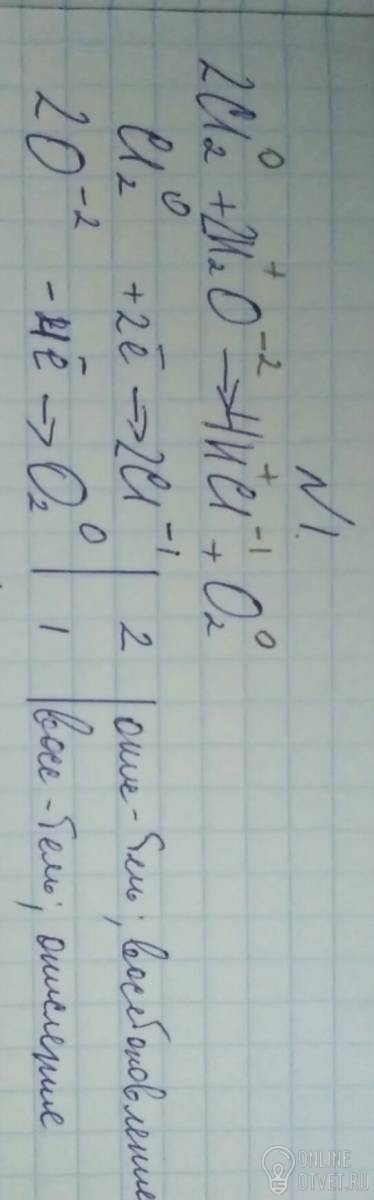 N1.
2Cl₂⁰ + 2H₂⁺O⁻² → 4H⁺Cl⁻¹ + O₂⁰
Cl₂⁰ + 2ē → 2Cl⁻¹ | 2 | окис-тель; восстановление
2O⁻² - 4ē → O₂⁰ | 1 | восс-тель; окисление
ONLINE
OTVET.RU